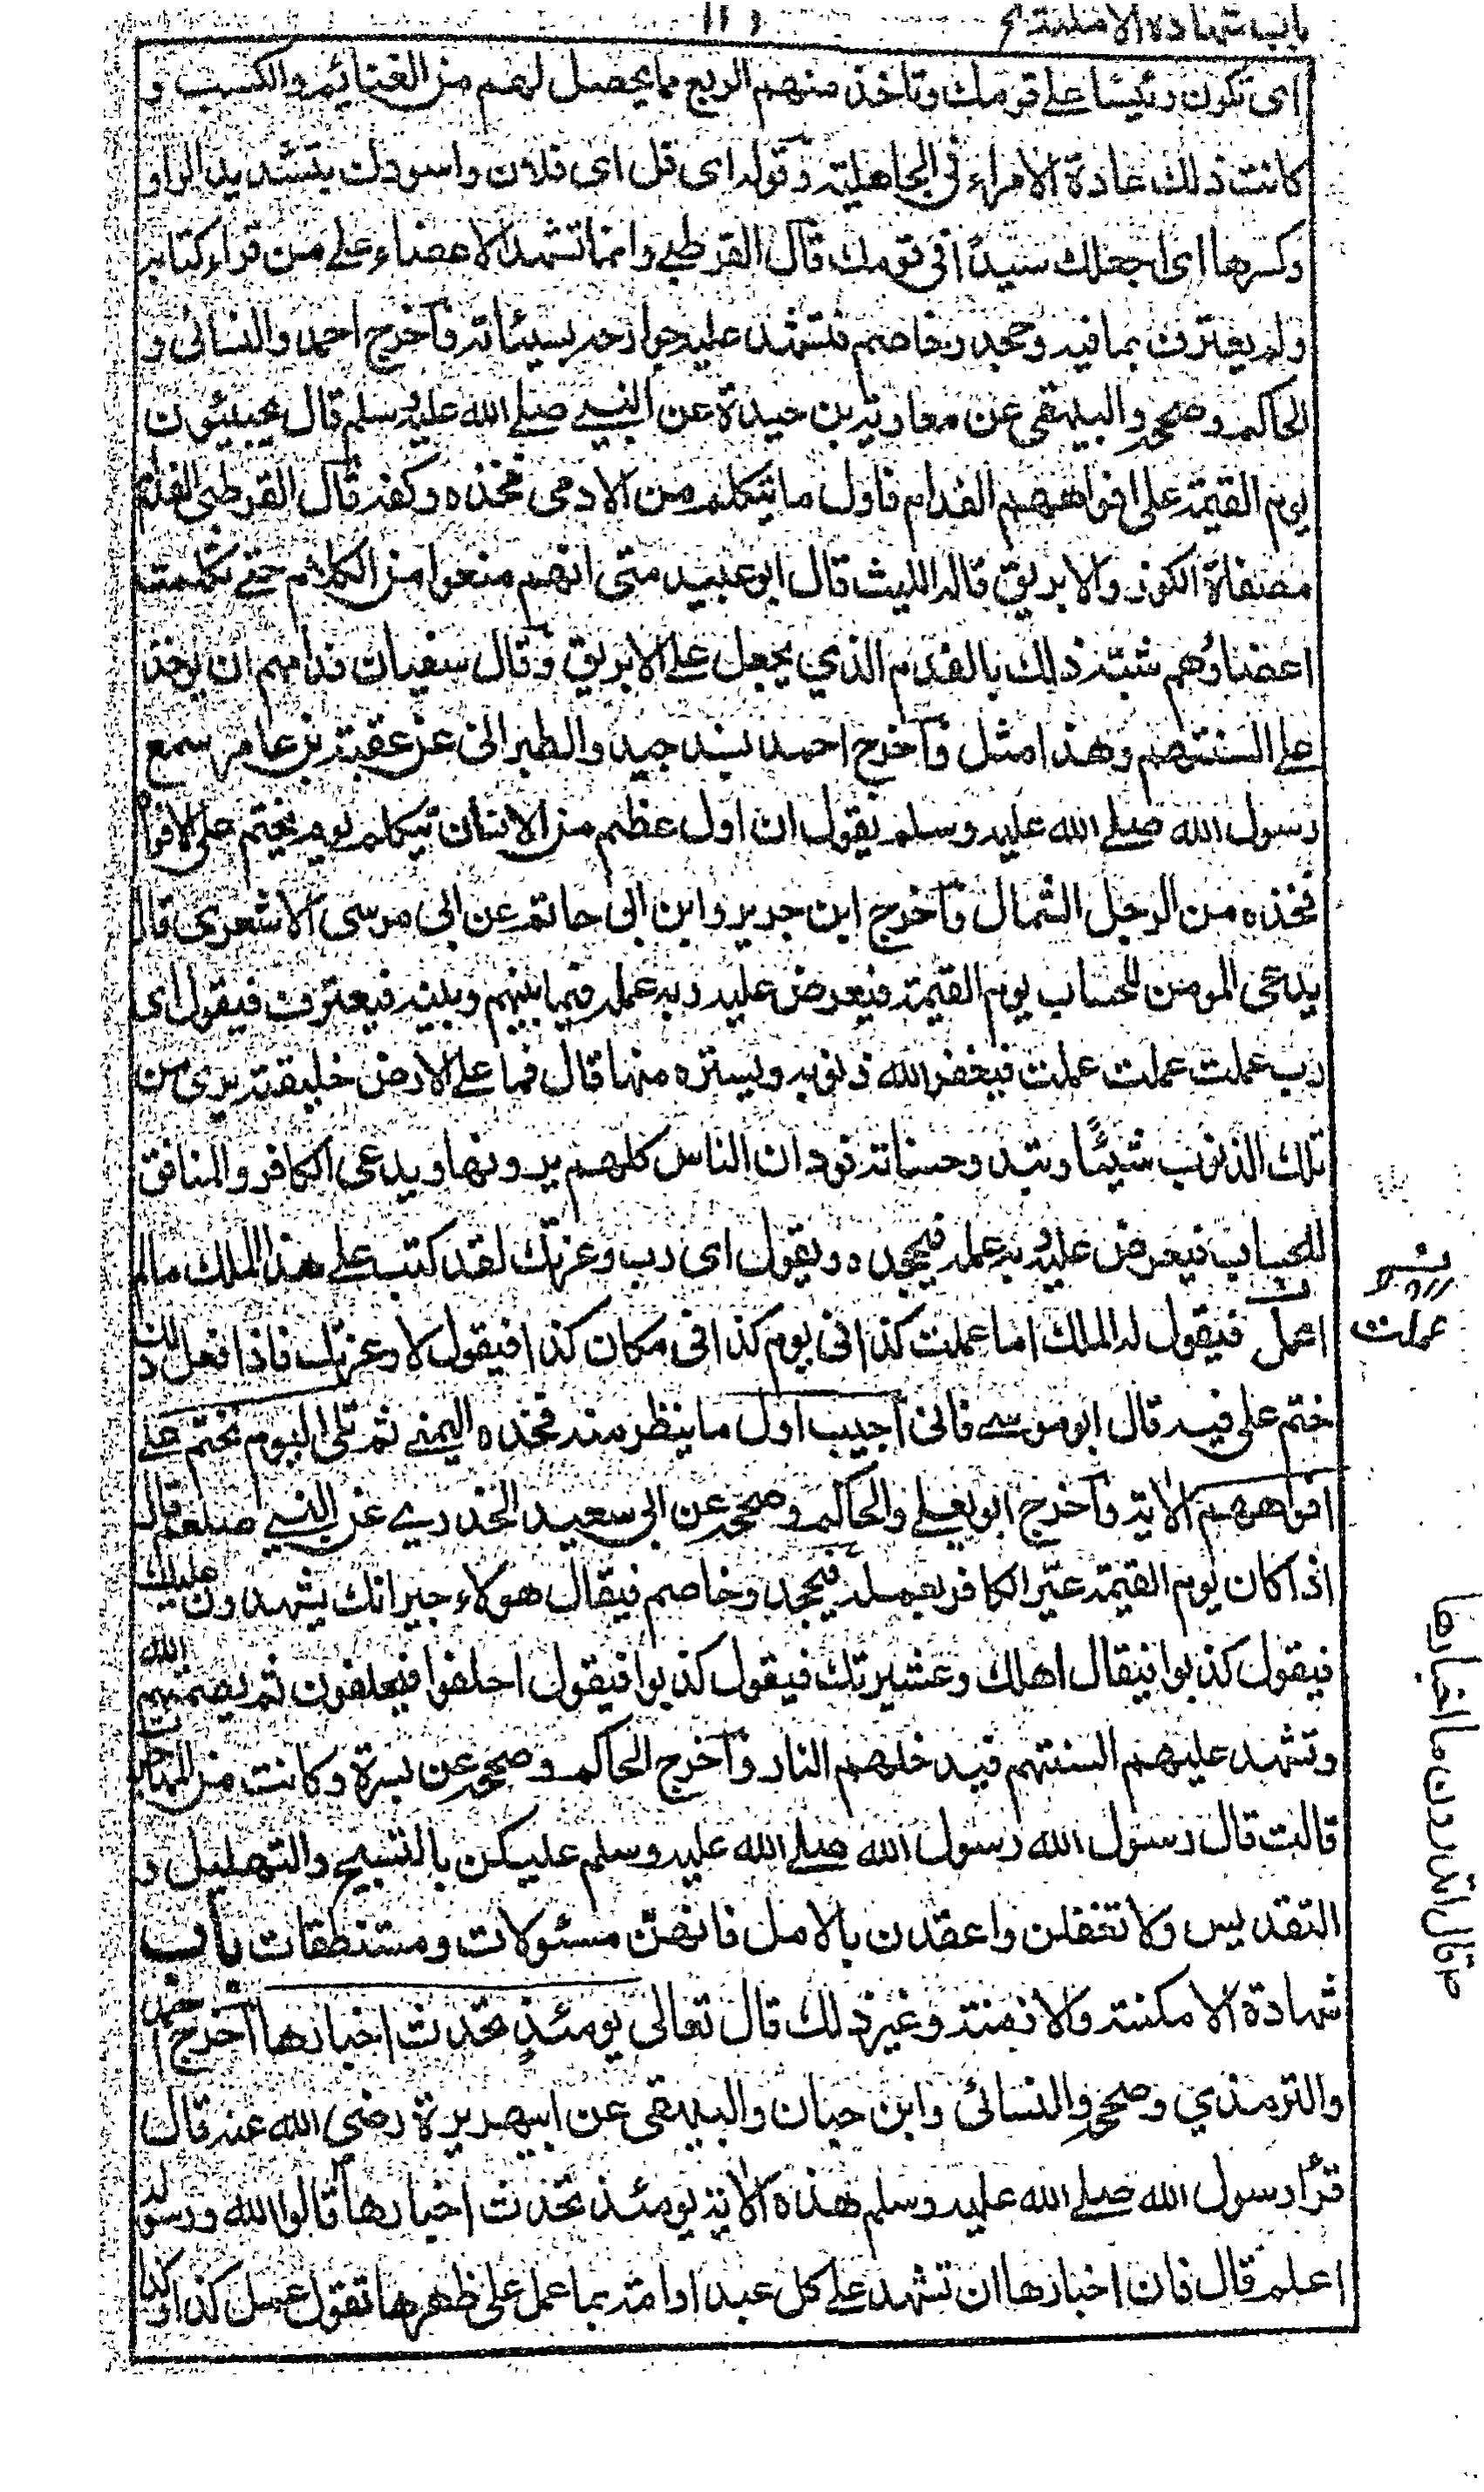 باب شهادة الامكنة
اى تكون رئيسا على قومك وتاخذ منهم الربع مما يحصل لهم من الغنائم والكسب و
كانت ذلك عادة الامراء فى الجاهلية وقوله اى فل اى فلان واسودك بتشديد الواو
وكسرها اى اجعلك سيدًا فى قومك قال القرطبى وانما تشهد الاعضاء على من قراء كتابه
ولم يعترف بما فيه وجحد وخاصم فتشهد عليه جوارحه بسيئاته وآخرج احمد والنسائى و
الحاكم وصححه والبيهقى عن معاوية بن حيدة عن النبى صلى الله عليه وسلم قال يجيئون
يوم القيمة على افواههم الفدام فاول ما يتكلم من الادمى فخذه وكفه قال القرطبى الفدام
مصفاة الكوز والابريق قاله الليث قال ابو عبيد متى انهم منعوا من الكلام حتى تكلمت
اعضاؤهم شبّه ذلك بالفدام الذي يجعل على الابريق وقال سفيان فدامهم ان يوخذ
على السنتهم وهذا مثل وآخرج احمد بسند جيد والطبرانى عن عقبة بن عامر سمع
رسول الله صلى الله عليه وسلم يقول ان اول عظم من الانسان يتكلم يوم يختم على الافواه
فخذه من الرجل الشمال وآخرج ابن جرير وابن ابى حاتم عن ابى موسى الاشعرى قال
يدعى المومن للحساب يوم القيمة فيعرض عليه ربه عمله فيما بينهم وبينه فيعترف فيقول اى
رب عملت عملت عملت فيغفر الله ذنوبه ويستره منها قال فما على الارض خليقة يرى من
تلك الذنوب شيئًا وتبدو حسناته فود ان الناس كلهم يرونها ويدعى الكافر والمنافق
للحساب فيعرض عليه ربه عمله فيجحده ويقول اى رب وعزتك لقد كتب على هذا الملك مالم
اعمل فيقول له الملك اما عملت كذا فى يوم كذا فى مكان كذا فيقول لا وعزتك فاذا فعل ذلك
عملت
ختم على فيه قال ابو موسى فانى احسب اول ما ينطق منه فخذه اليمنى ثم تلى اليوم نختم على
افواههم الاية وآخرج ابو يعلى والحاكم وصححه عن ابى سعيد الخدرى عن النبى صلعم قال
اذا كان يوم القيمة عيّر الكافر بعمله فيجحد وخاصم فيقال هولاء جيرانك يشهدون عليك
فيقول كذبوا فيقال اهلك وعشيرتك فيقول كذبوا فيقول احلفوا فيحلفون ثم يصمتهم الله
وتشهد عليهم السنتهم فيدخلهم النار وآخرج الحاكم وصححه عن يسرة وكانت من المهاجرات
قالت قال رسول الله رسول الله صلى الله عليه وسلم عليكن بالتسبيح والتهليل و
التقديس ولا تغفلن واعقدن بالامل فانهن مسئولات ومستنطقات باب
شهادة الامكنة والازمنة وغير ذلك قال تعالى يومئذٍ تحدث اخبارها آخرج احمد
والترمذي وصححه والنسائى وابن حبان والبيهقى عن ابيهريرة رضي الله عنه قال
قرأ رسول الله صلى الله عليه وسلم هذه الاية يومئذ تحدث اخبارها قالوا الله ورسوله
اعلم قال فان اخبارها ان تشهد على كل عبد او امة بما عمل على ظهرها تقول عمل كذا وكذا
قال اتدرون ما اخبارها